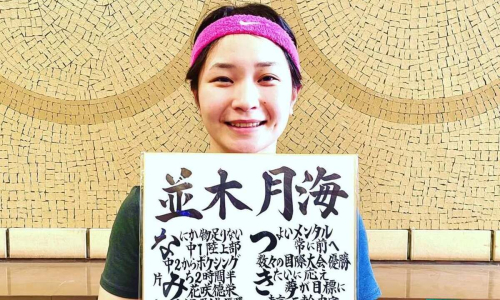 並木月海
なにか物足りない
中1 陸上部
中2からボクシング
片みち2時間半
花咲徳栄
つよいメンタル
常に前へ
数々の国際大会優勝
きたいに応え
夢が目標に